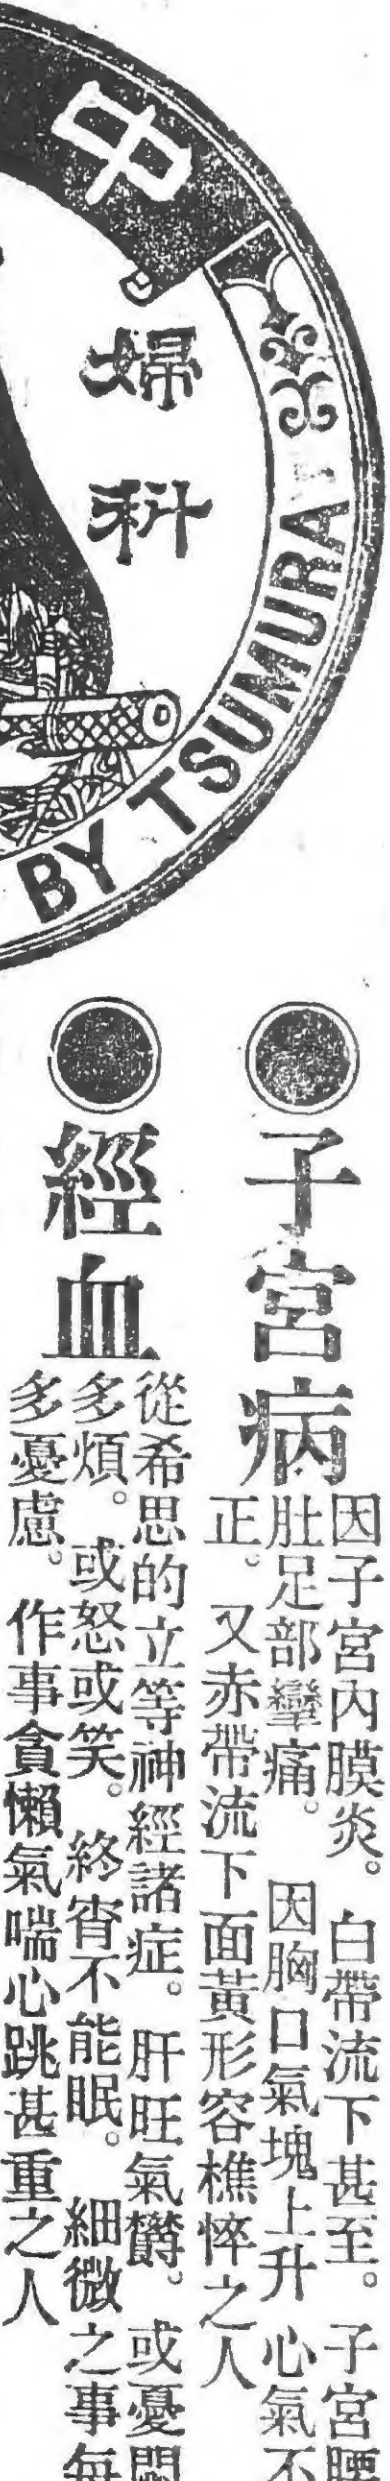 中
婦科
BY TSUMURA
子宮病
因子宮內膜炎。白帶流下甚至。子宮腰
肚足部攣痛。因胸口氣塊上升心氣不
正。又赤帶流下面黃形容樵悴之人
經血
從希思的立等神經諸症。肝旺氣欝。或憂悶
多煩。或怒或笑。終宵不能眠。細微之事每
多憂慮。作事貪懶氣喘心跳甚重之人